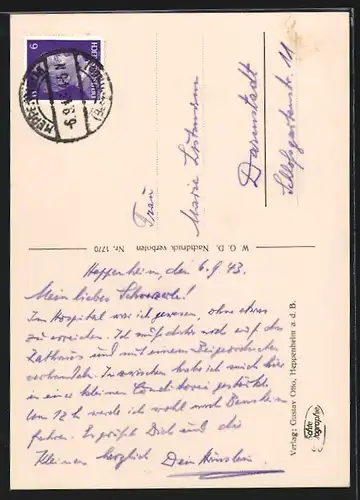 Heppenheim, den 6.9.43.
Mein liebes
Im Hospital war ich gewesen, ohne etwas
zu erreichen. Ich muß daher noch auf das
Rathaus und mit einem
verhandeln. Inzwischen habe ich mich hier
in einer kleinen Conditorei gestärkt.
Um 12 h werde ich wohl nach Bensheim
fahren. Es grüßt Dich und die
Kleinen herzlich Dein
Frau
Marie
Darmstadt
Schloßgartenstr. 11
W. G. D. Nachdruck verboten Nr. 1770
Verlag: Gustav Otto, Heppenheim a. d. B.
Echte
Photographie
6